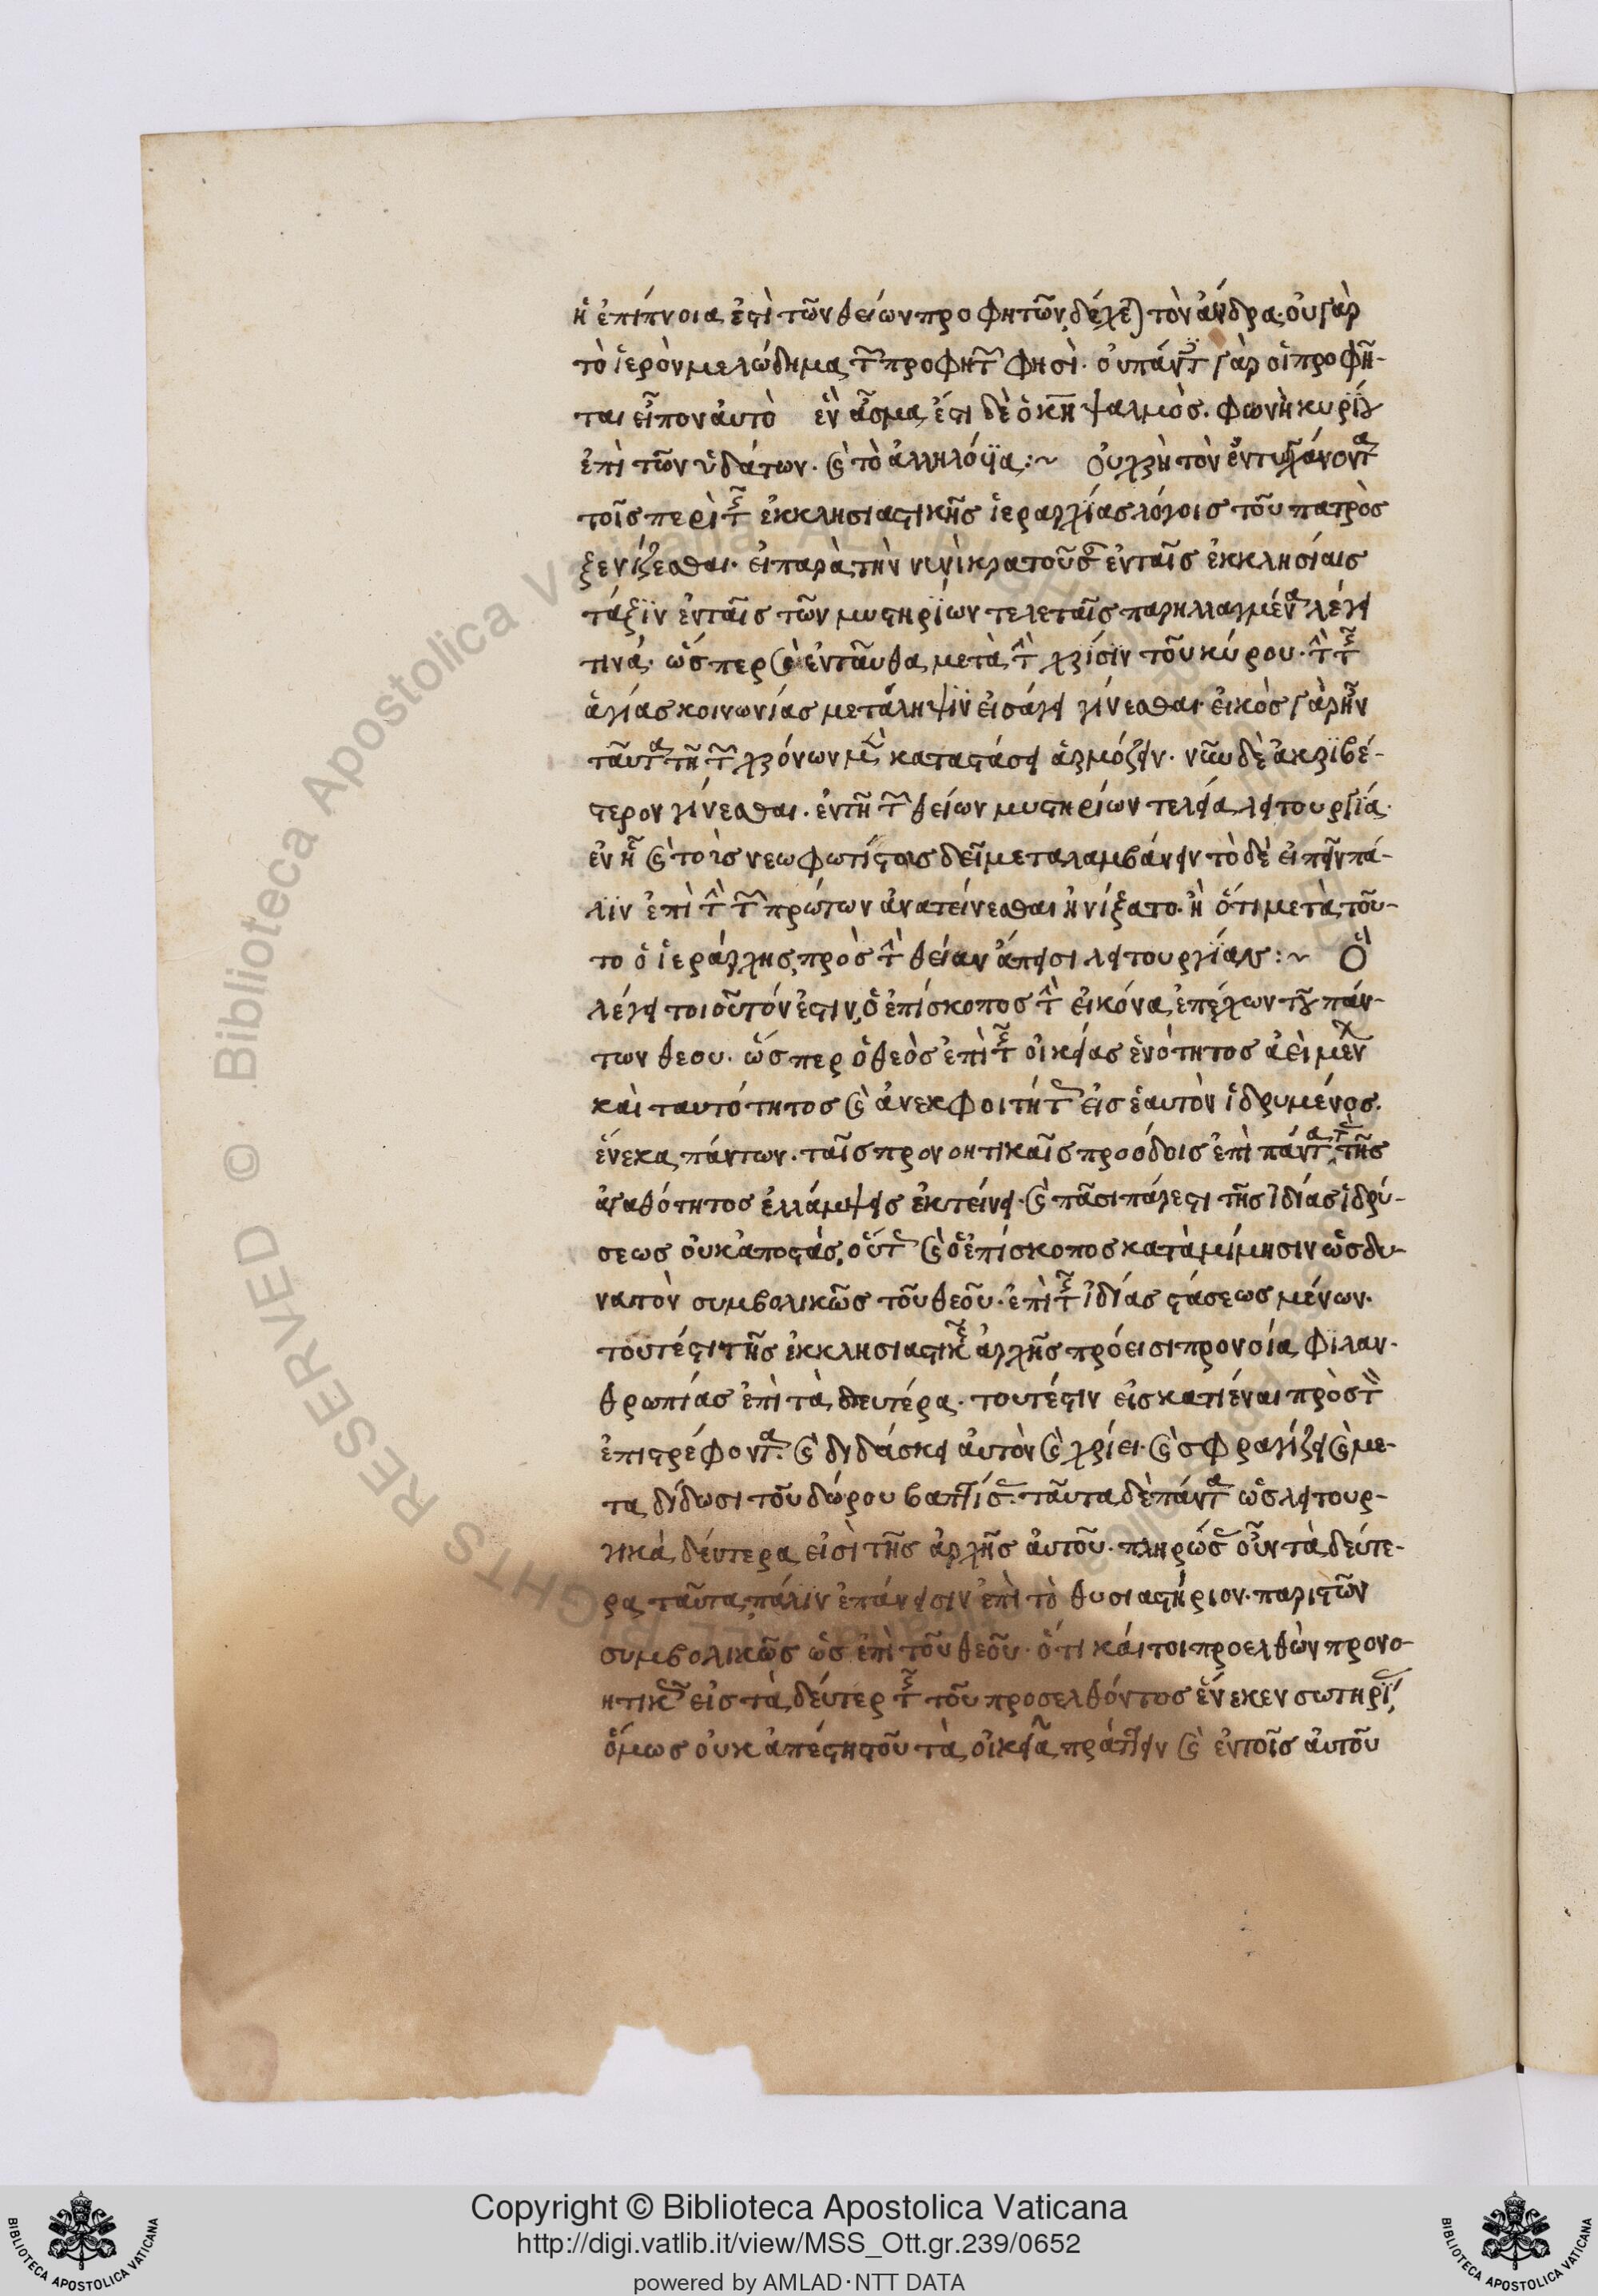 ἡ ἐπίπνοια ἐστὶ τῶν θείων προφητῶν, δέχε) τὸν ἄνδρα· οὐ γὰρ
τὸ ἱερὸν μελώδημα τῶν προφητῶν φησὶ· οὐ πάντες γὰρ οἱ προφῆ-
ται εἶπον αὐτὸ ἓν ἆσμα, ἔστι δὲ ὁ κη ψαλμὸς. φωνὴ κυρίου
ἐπὶ τῶν ὑδάτων. καὶ τὸ ἀλληλούϊα :~ Οὐ χρὴ τὸν ἐντυγχάνοντα
τοῖς περὶ τῆς ἐκκλησιαστικῆς ἱεραρχίας λόγοις τοῦ πατρὸς
ξενίζεσθαι. εἰ παρὰ τὴν νυνὶ κρατοῦσαν ἐν ταῖς ἐκκλησίαις
τάξιν ἐν ταῖς τῶν μυστηρίων τελεταῖς παρηλλαγμένα λέγει
τινά· ὥσπερ καὶ ἐνταῦθα μετὰ τὴν χρίσιν τοῦ κύρου. τὴν τῆς
ἁγίας κοινωνίας μετάληψιν εἰσάγει γίνεσθαι· εἰκὸς γὰρ ἦν
ταῦτα τῇ τῶν χρόνων μὲν καταστάσει ἁρμόζειν. νῦν δὲ ἀκριβέ-
στερον γίνεσθαι. ἐν τῇ τῶν θείων μυστηρίων τελεία λειτουργία·
ἐν ᾗ καὶ τοὺς νεωφωτίστους δεῖ μεταλαμβάνειν τὸ δὲ εἰπεῖν πά-
λιν ἐπὶ τὴν τῶν πρώτων ἀνατείνεσθαι ἠνίξατο. ἢ ὅτι μετὰ τοῦ-
το ὁ ἱεράρχης πρὸς τὴν θείαν ἄπεισι λειτουργίαν :~ Ὃ
λέγει τοιοῦτόν ἐστιν, ὁ ἐπίσκοπος τὴν εἰκόνα ἐπέχων τοῦ πάν-
των θεου. ὥσπερ ὁ θεὸς ἐπὶ τῆς οἰκείας ἑνότητος ἀεὶ μένων
καὶ ταυτότητος καὶ ἀνεκφοιτήτως εἰς ἑαυτὸν ἱδρυμένος.
ἕνεκα πάντων. ταῖς προνοητικαῖς προόδοις ἐπὶ πάντα τὰς τῆς
ἀγαθότητος ἐλλάμψεις ἐκτείνει. καὶ πᾶσι πάρεστι τῆς ἰδίας ἱδρύ-
σεως οὐκ ἀποστάς, οὕτω καὶ ὁ ἐπίσκοπος κατὰ μίμησιν ὡς δυ-
νατὸν συμβολικῶς τοῦ θεοῦ. ἐπὶ τῆς ἰδίας στάσεως μένων.
τουτέστι τῆς ἐκκλησιαστικῆς ἀρχῆς πρόεισι προνοία φιλαν-
θρωπίας ἐπὶ τὰ δευτέρα. τουτέστιν εἰς κατιέναι πρὸς τὸν
ἐπιστρέφοντα. καὶ διδάσκει αὐτὸν καὶ χρίει. καὶ σφραγίζει καὶ με-
ταδίδωσι τοῦ δώρου βαπτίσας. ταῦτα δὲ πάντα ὡς λειτουρ-
γικὰ δεύτερα εἰσὶ τῆς ἀρχῆς αὐτοῦ. πληρώσας οὖν τὰ δεύτε-
ρα ταῦτα, πάλιν ἐπάνεισιν ἐπὶ τὸ θυσιαστήριον. παριστῶν
συμβολικῶς ὡς ἐπὶ τοῦ θεοῦ. ὅτι καίτοι προελθὼν προνο-
ητικῶς εἰς τὰ δεύτερ τῆς τοῦ προσελθόντος ἕνεκεν σωτηρίας,
ὅμως οὐκ ἀπέστη τοῦ τὰ οἰκεῖα πράττειν καὶ ἐν τοῖς αὐτοῦ
Copyright © Biblioteca Apostolica Vaticana
http://digi.vatlib.it/view/MSS_Ott.gr.239/0652
powered by AMLAD·NTT DATA